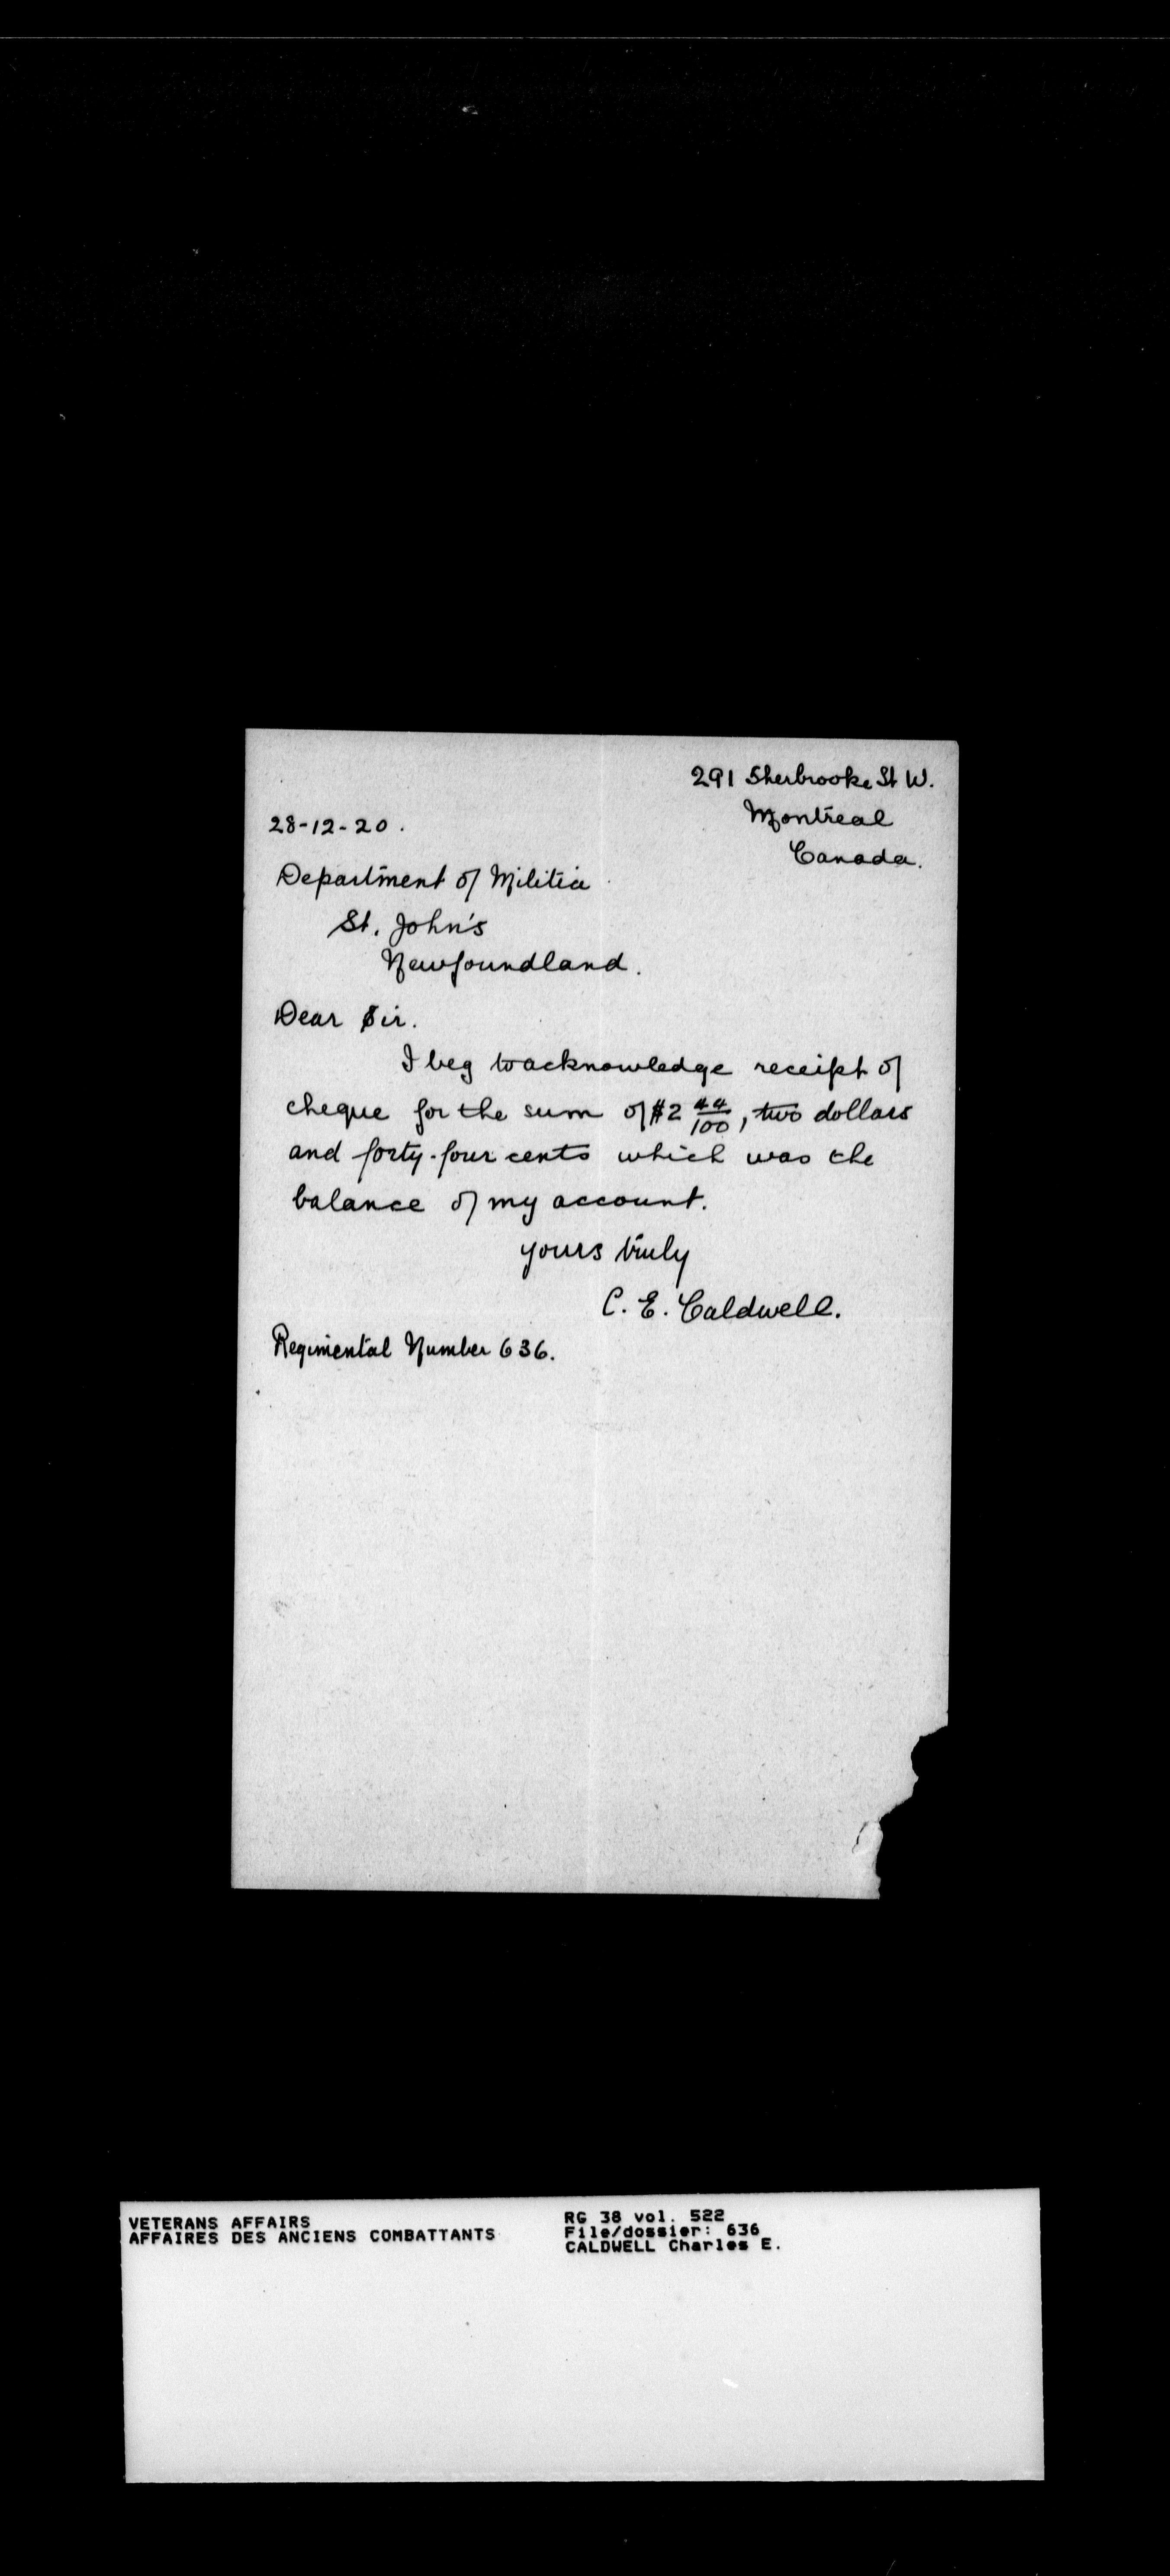 291 Sherbrooke St W.
Montreal
Canada.
28-12-20.
Department of Militia
St. John's
Newfoundland.
Dear Sir.
I beg to acknowledge receipt of
cheque for the sum of $2 44/100, two dollars
and forty-four cents which was the
balance of my account.
yours truly
C. E. Caldwell.
Regimental Number 636.
VETERANS AFFAIRS
AFFAIRES DES ANCIENS COMBATTANTS
RG 38 vol. 522
File/dossier: 636
CALDWELL Charles E.